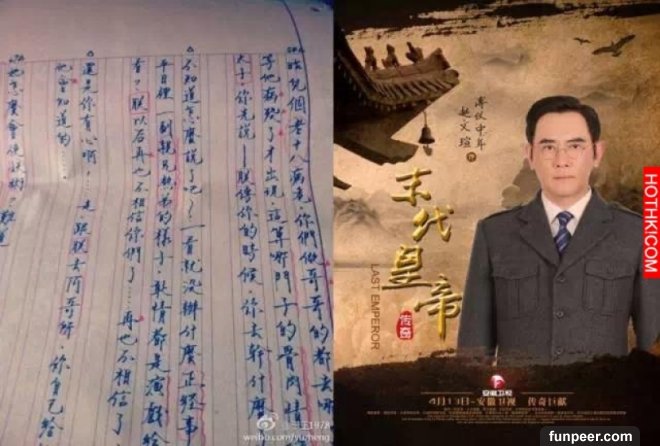 昨兒個老十八病危 你們做哥哥的都去哪
等他病歿了才出現、這算哪門子的骨肉情
你先說——朕傳你的時候 你去幹什麼
不知道怎麼說了吧!一看就沒辦什麼正經事
平日裡一副親兄熱弟的樣子、敢情都是演戲給
看?朕以后再也不相信你們了……再也不相信了
還是你有心啊!……走 跟朕去阿哥所 你自己給
他會知道的……
他怎麼會
1978
weibo.com/yuzheng
溥仪中年
赵文瑄
饰
末代皇帝
传奇
LAST EMPEROR
安徽卫视
4月13日·安徽卫视 传奇巨献
HOTHKI.COM
funpeer.com